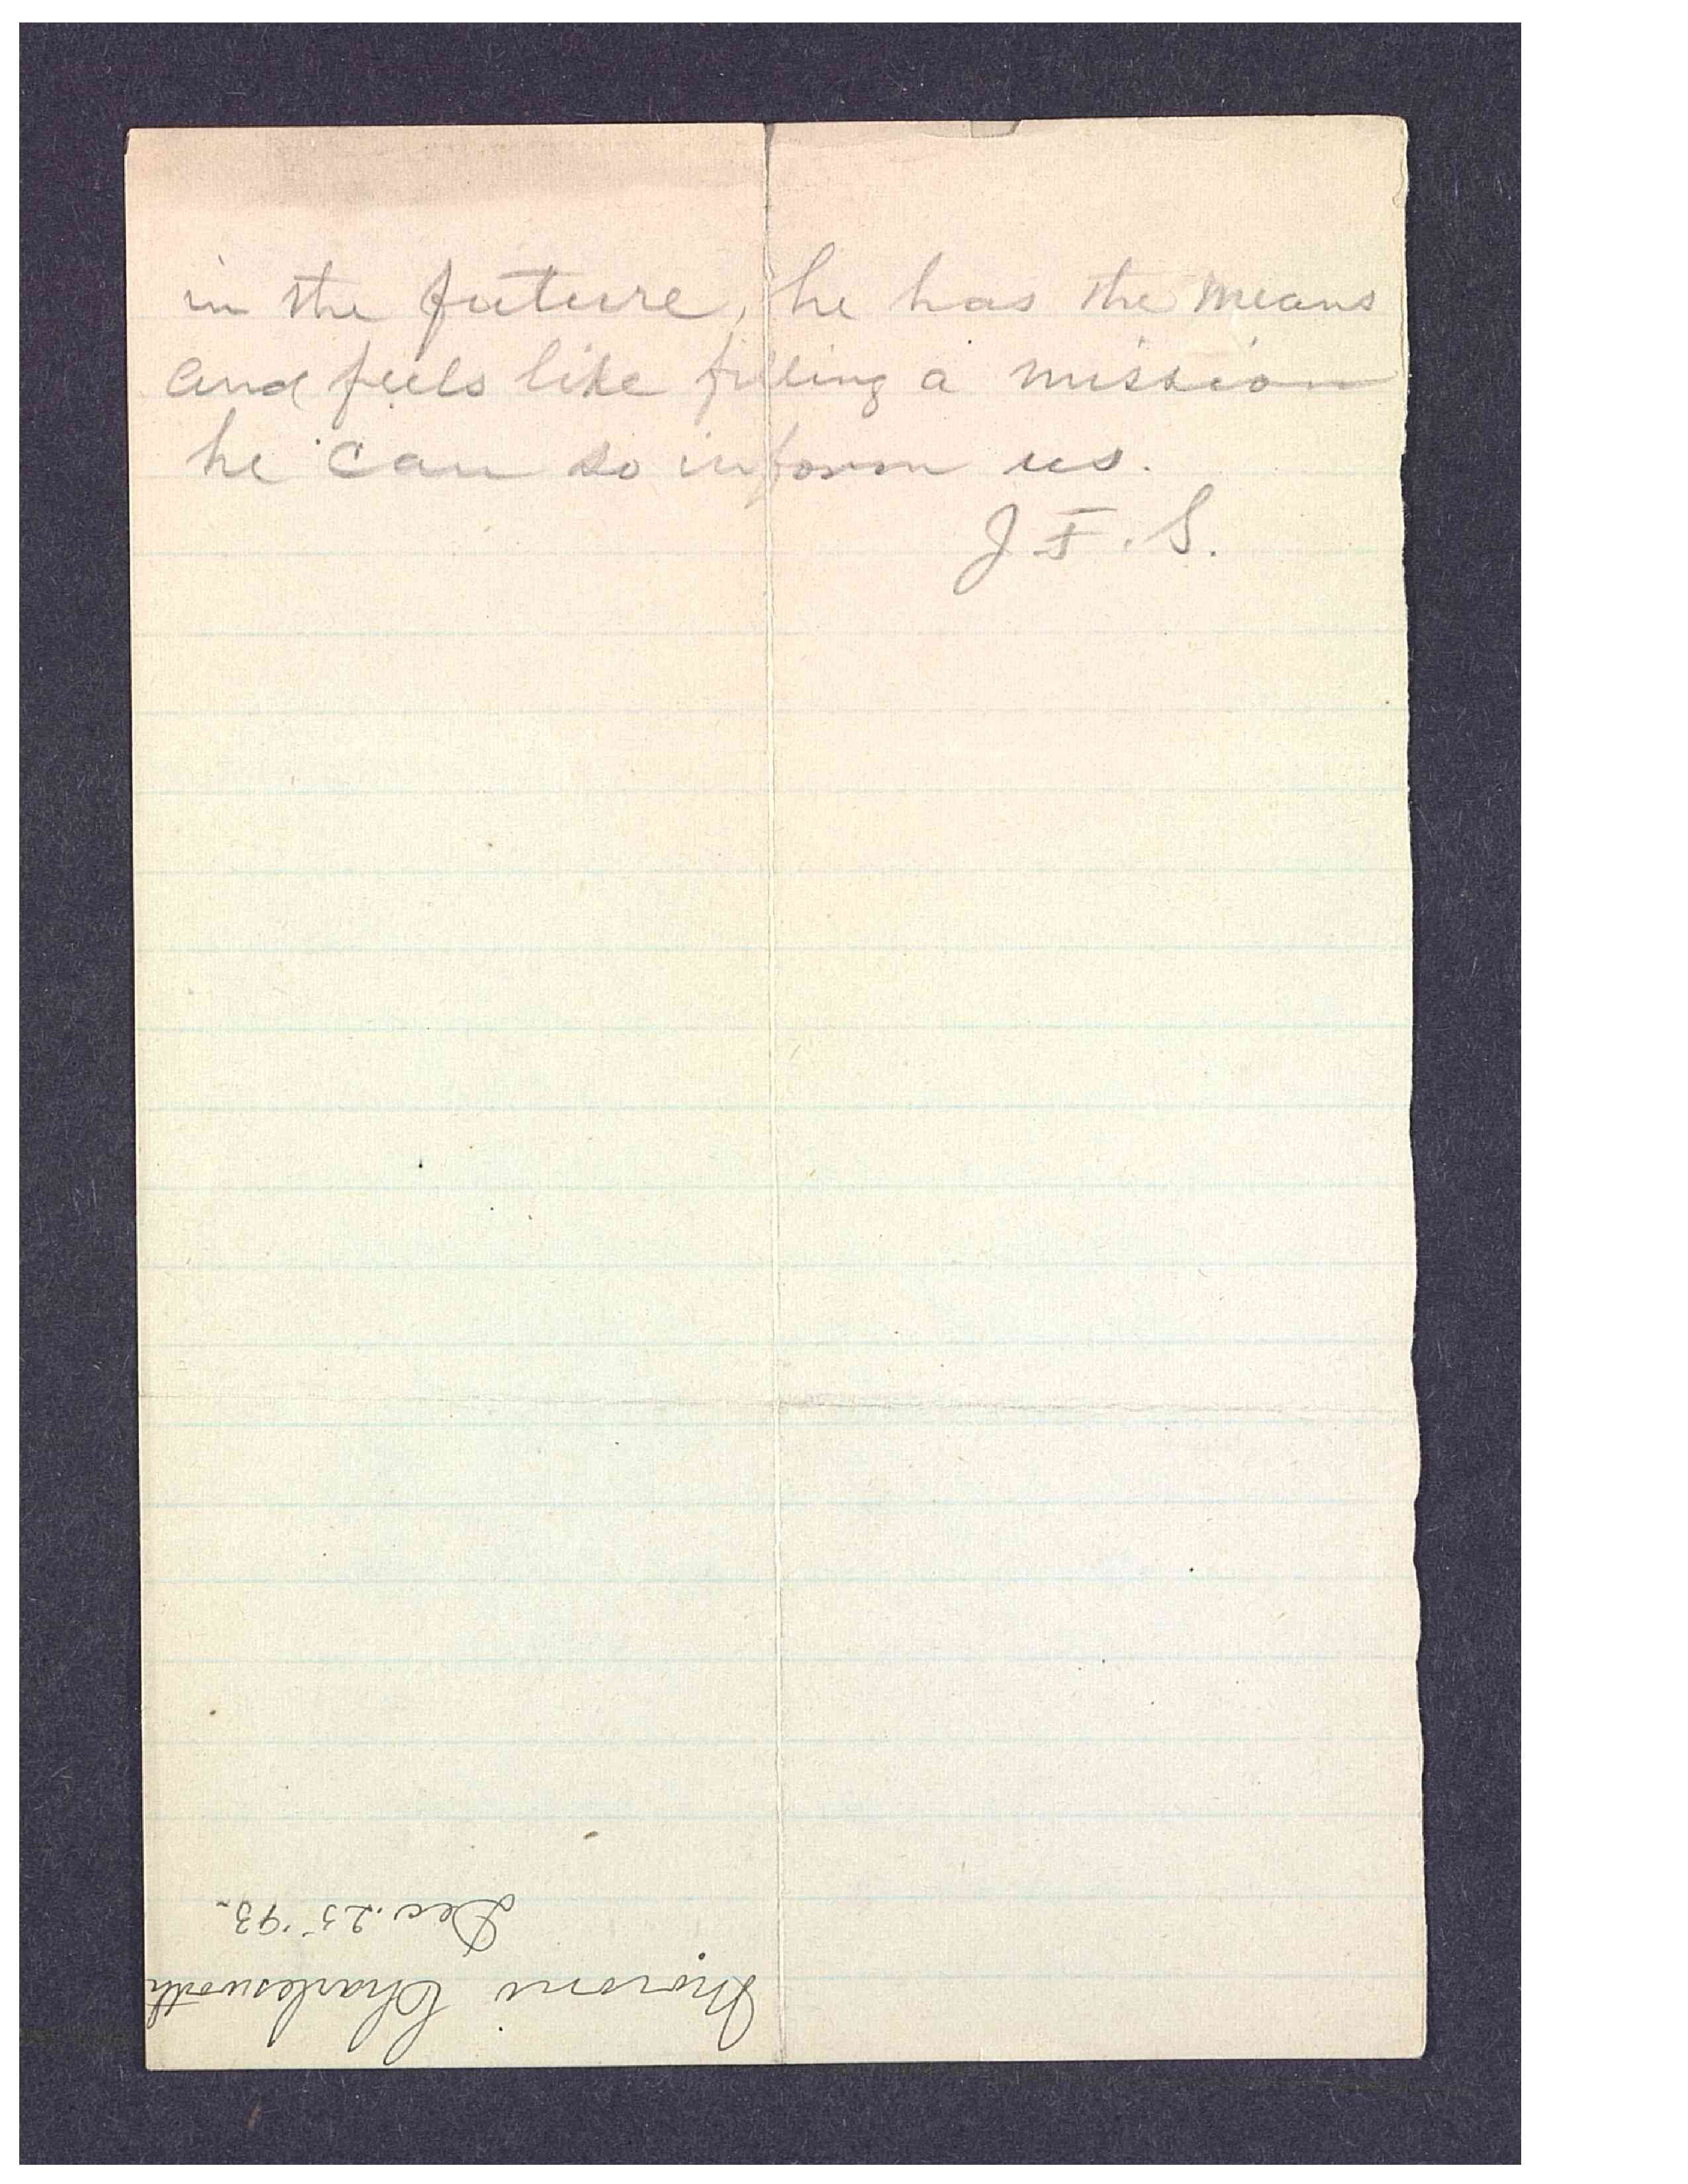 in the future, he has the means
and feels like filling a mission
he can so inform us.
J F. S.
Moroni Charlesworth
Dec. 25 '93.